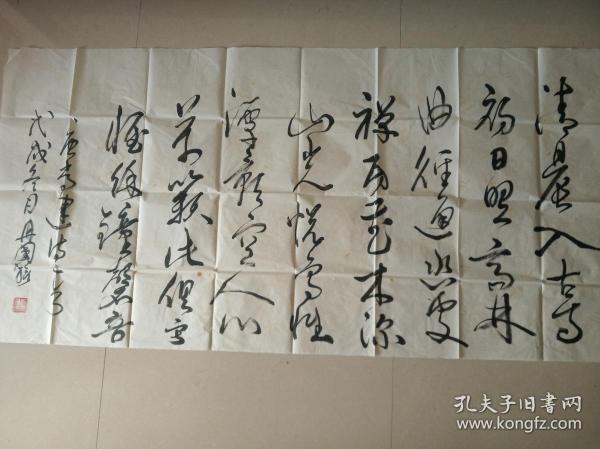 清晨入古寺
初日照高林
曲径通幽处
禅房花木深
山光悦鸟性
潭影空人心
万籁此俱寂
惟余钟磬音
唐常建诗一首
戊戌冬月
孔夫子旧书网
www.kongfz.com